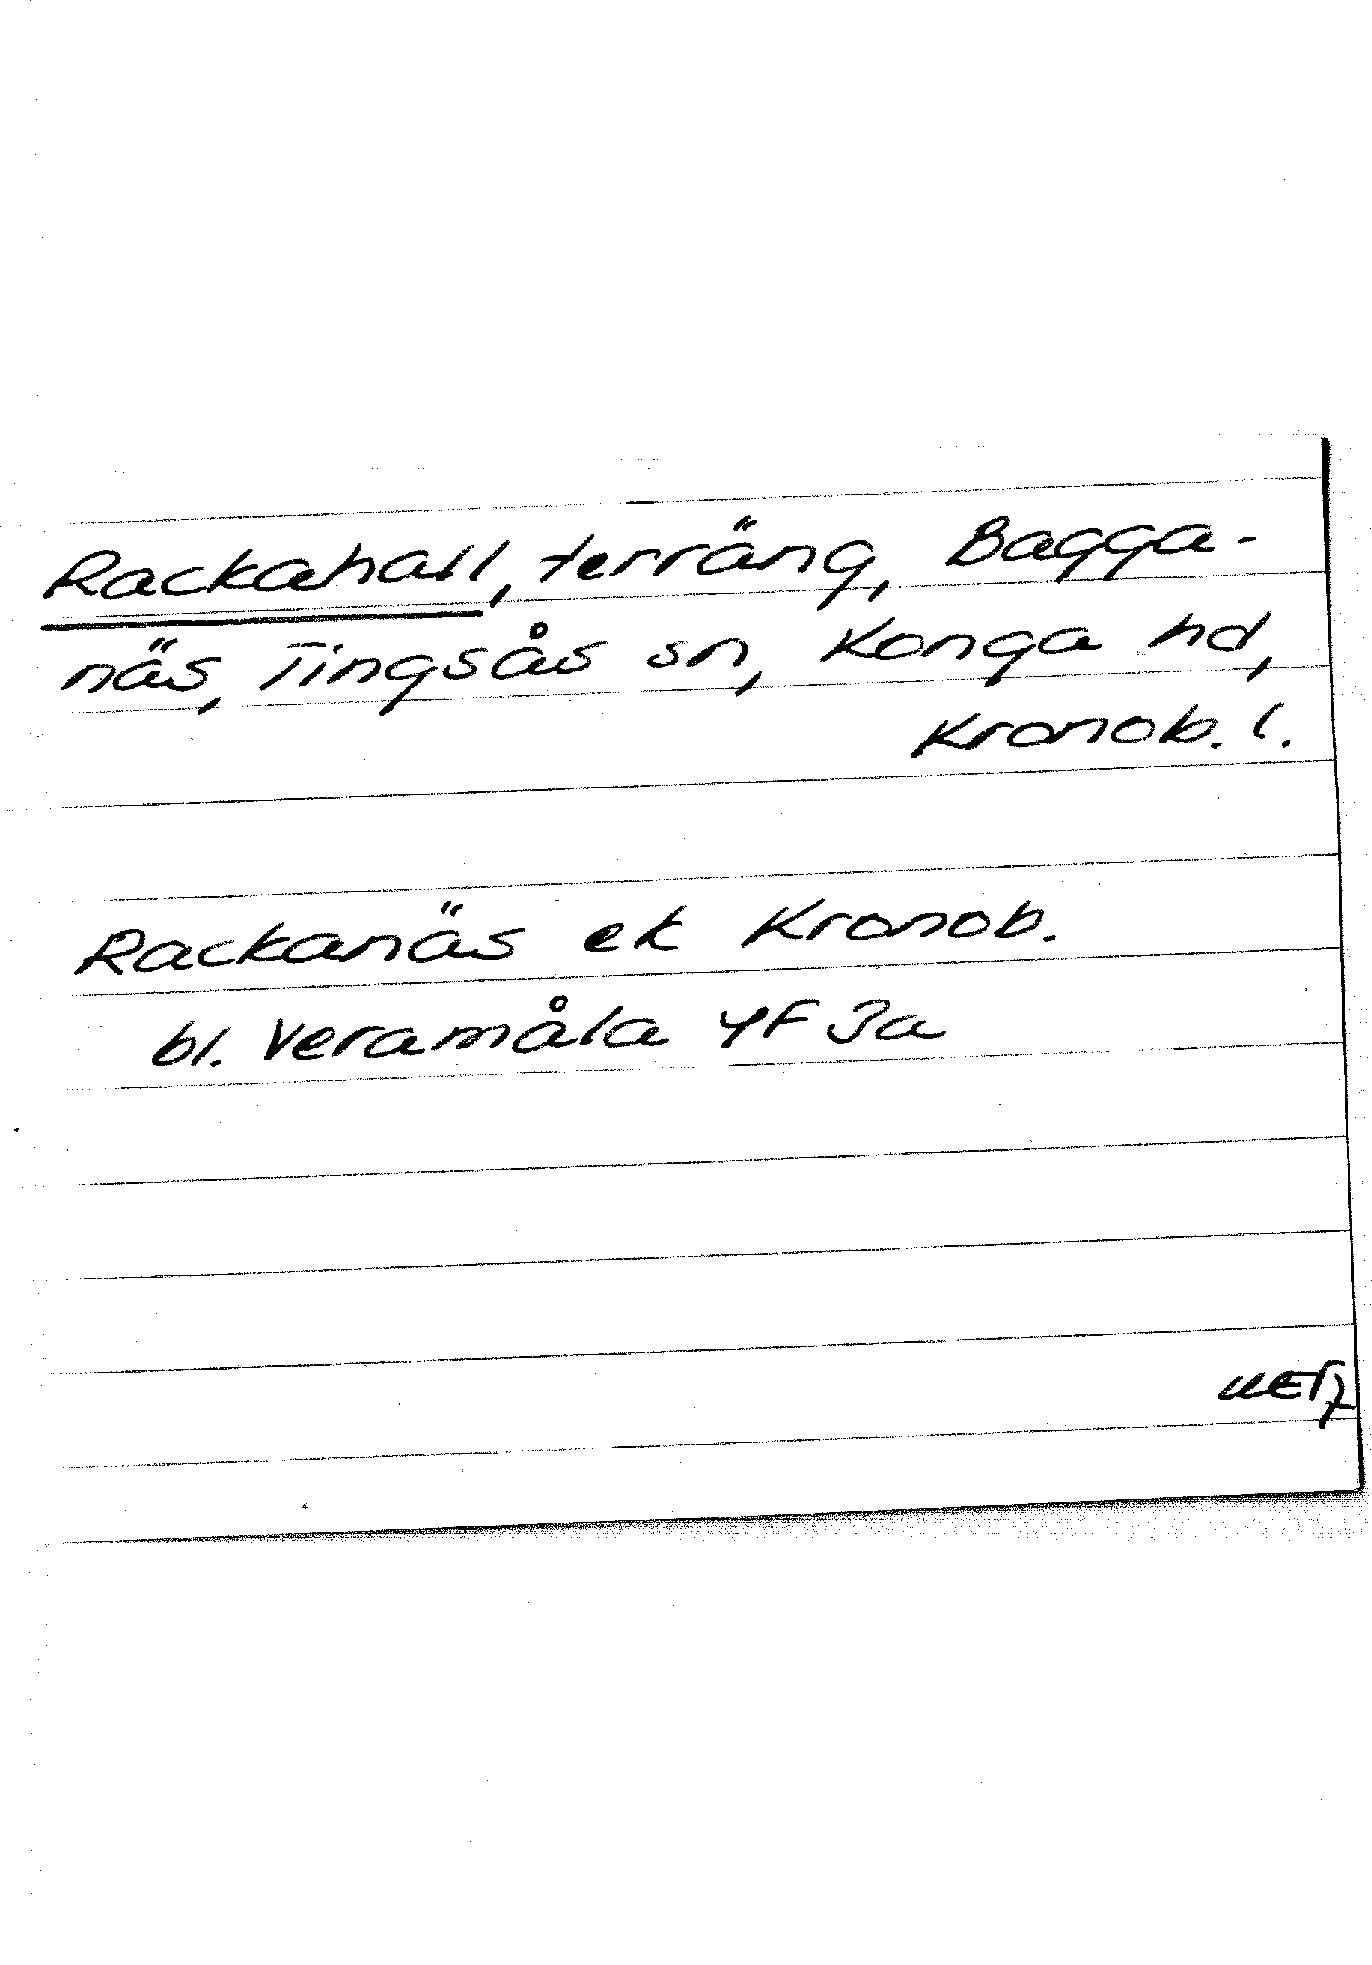 Rackahall, terräng, Bagga-
näs, Tingsås sn, Konga hd,
Kronob. l.
Rackanäs ek Kronob.
bl. Veramåla 4F 3a